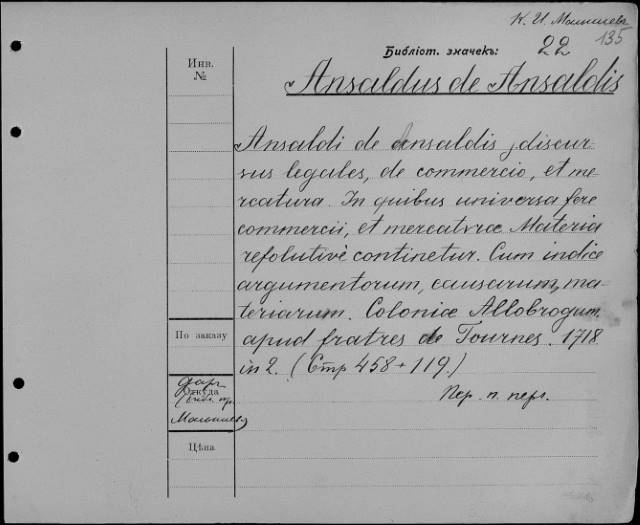 К. И. Малышевъ
135
Библіот. значекъ: 22
Инв.
№
Ansaldus de Ansaldis
Ansaldi de Ansaldis, discur-
sus legales, de commercio, et me-
rcatura. In quibus universa fere
commercii, et mercaturæ Materia
resolutivè continetur. Cum indice
argumentorum, causarum, ma-
teriarum. Coloniæ Allobrogum,
apud fratres de Tournes. 1718
in 2. (Стр 458 + 119.)
Пер. п. перг.
По заказу
Откуда
Дар
Малышев
Цѣна